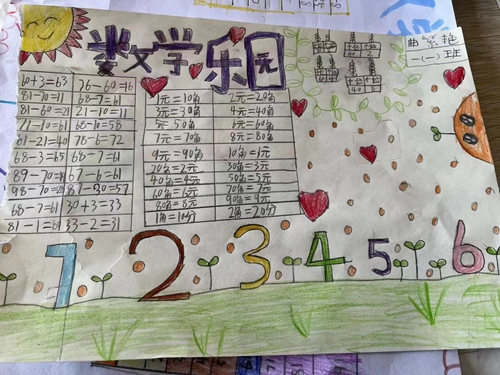 数学乐园
曲紫艳
一(一)班
60+3=63 76-60=16
81-70=11 68-7=61
81-60=21 21-10=11
71-10=61 68-10=58
81-21=40 78-6=72
68-3=65 68-7=61
89-7= 67-6=61
98-70= 87-30=57
68-7=61 30+3=33
81-1= 33-2=31
1元=10角 2元=20角
3元=30角 4元=40角
50角 6元=60角
7元=70角 8元=80角
9元=90角 10角=1元
20角=2元 30角=3元
40角=4元 50角=5元
60角=6元 70角=7元
80角=8元 90角=9元
1角=10分 2角=20分
1 2 3 4 5 6